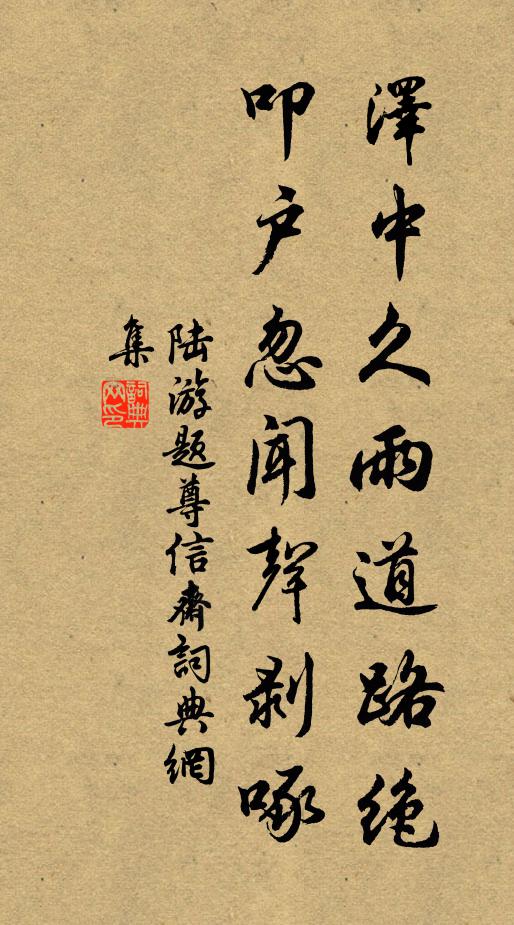 澤中久雨道路绝
叩户忽聞聲剥啄
陆游题尊信齋詞典網
集
詞典
网印